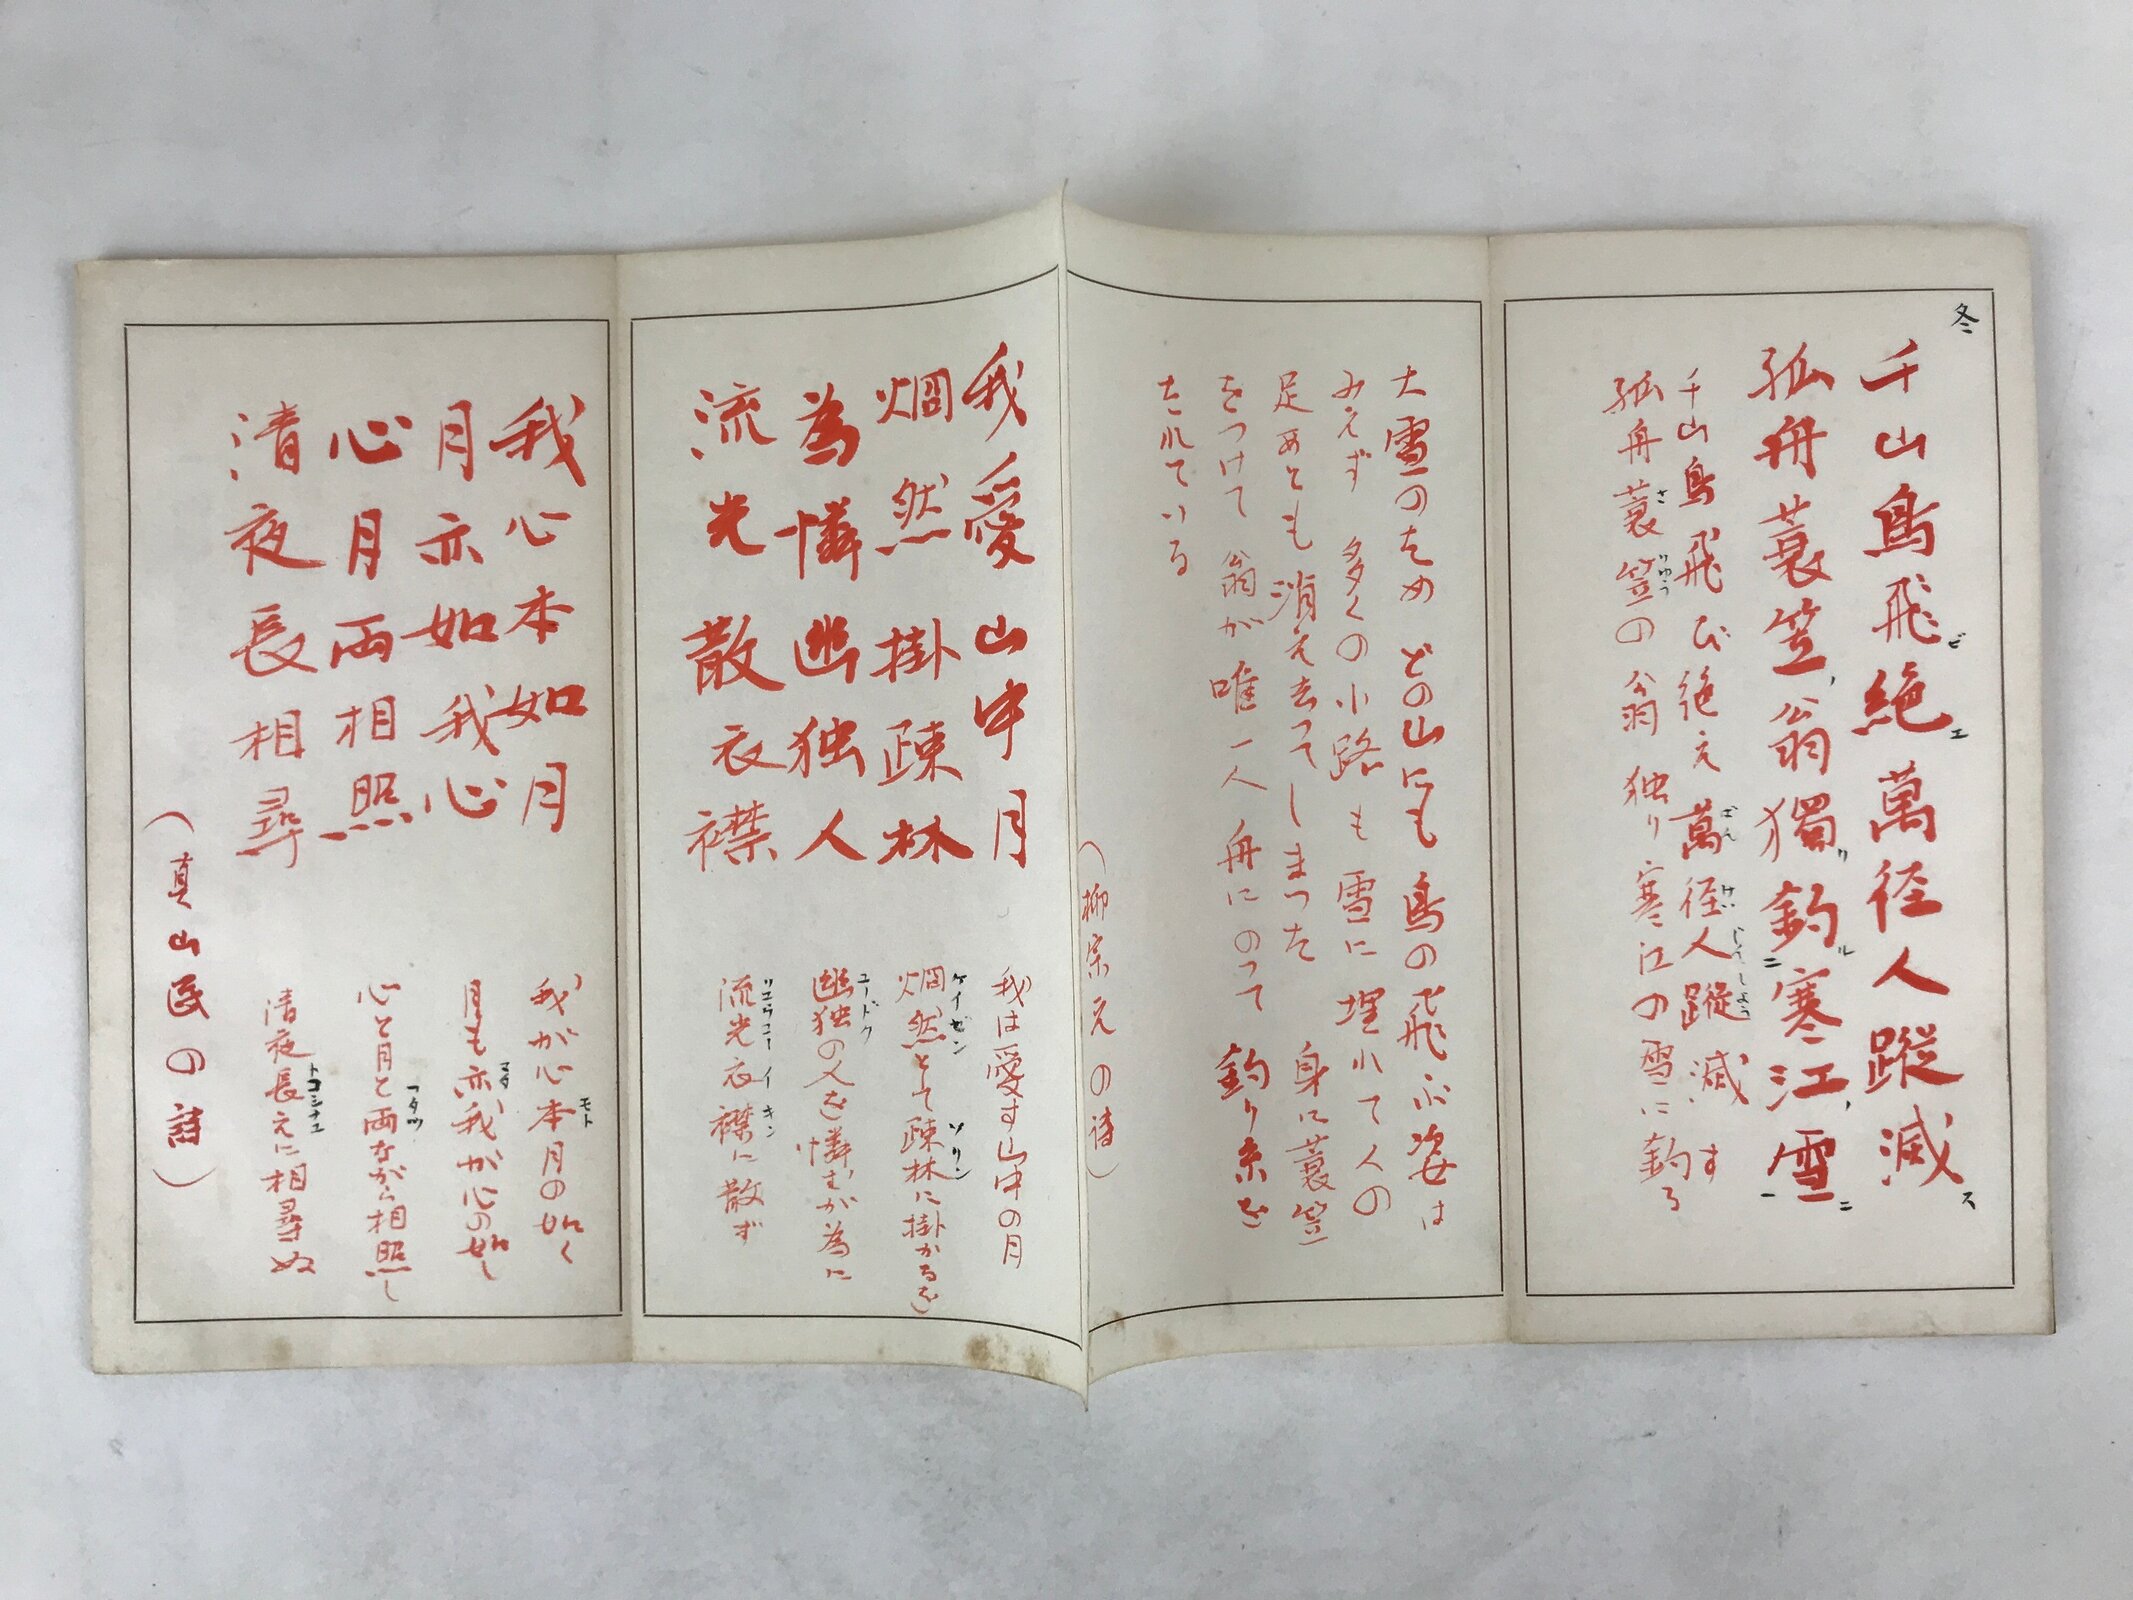 冬
千山鳥飛絶萬径人蹤滅
孤舟蓑笠翁獨釣寒江雪
千山鳥飛び絶え萬径人蹤滅す
孤舟蓑笠の翁 独り寒江の雪に釣る
大雪のため どの山にも 鳥の飛ぶ姿は
みえず 多くの小路も雪に埋れて人の
足あとも消え去ってしまった 身に蓑笠
をつけて 翁が唯一人 舟にのって 釣り糸を
たれている
(柳宗元の詩)
我愛山中月
烱然掛疎林
為憐幽独人
流光散衣襟
我は愛す山中の月
烱然として疎林に掛かるを
幽独の人を憐むが為に
流光衣襟に散ず
我心本如月
月亦如我心
心月両相照
清夜長相尋
我が心本月の如く
月も亦我が心の如し
心と月と両ながら相照し
清夜長えに相尋ぬ
(真山民の詩)